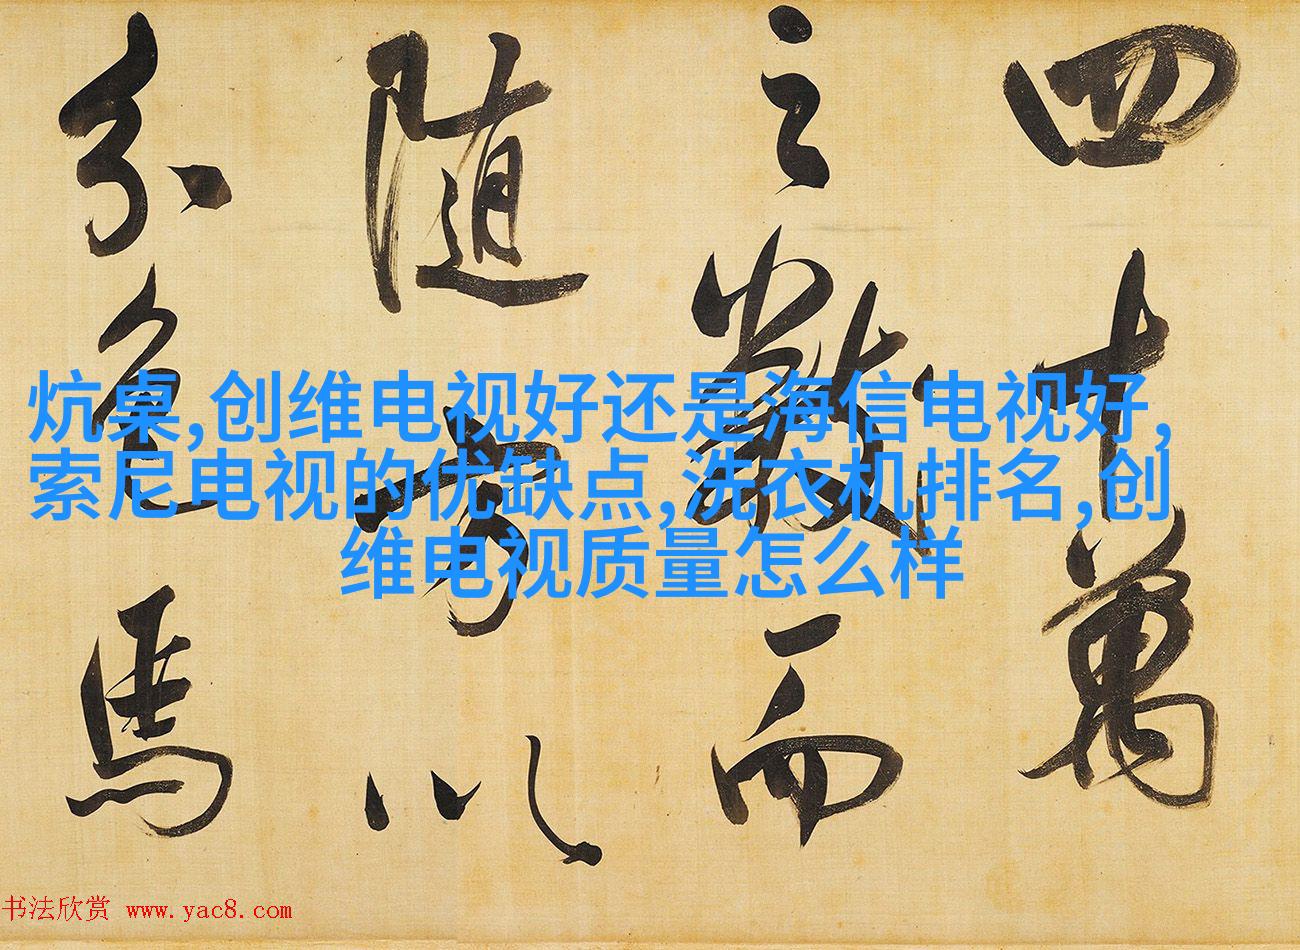 四十萬
之數而
随方以
分色馬
炕桌,创维电视好还是海信电视好,
索尼电视的优缺点,洗衣机排名,创
维电视质量怎么样
书法欣赏 www.yac8.com